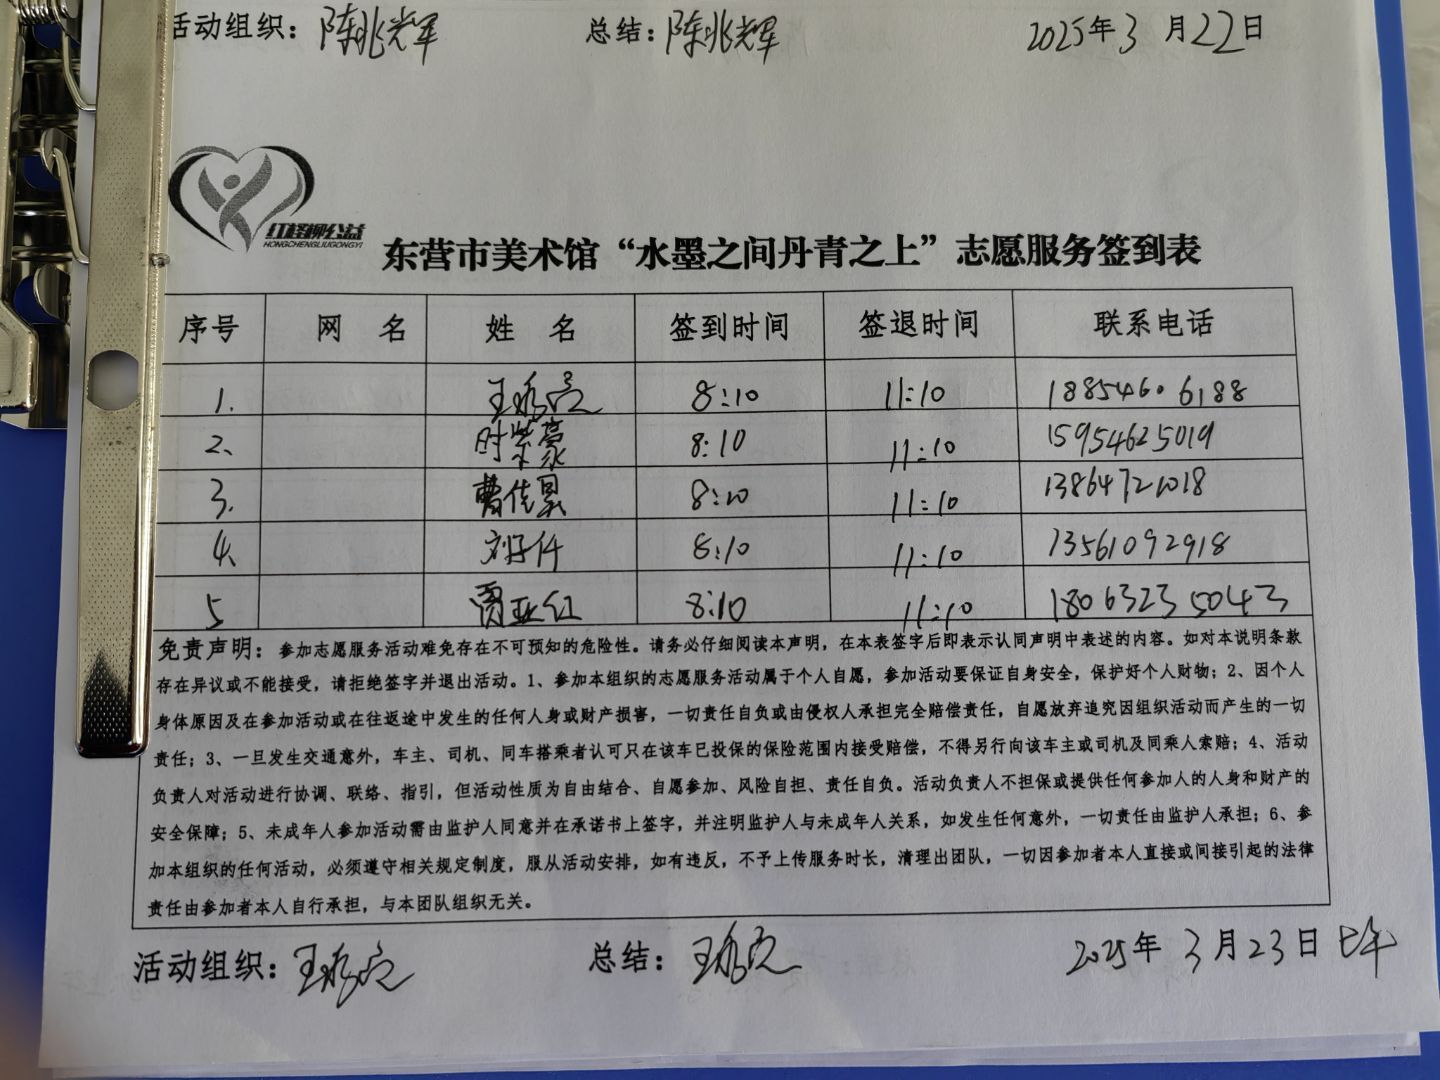 活动组织：陈兆辉 总结：陈兆辉 2025年3月22日
红柽柳公益
HONGCHENGLIUGONGYI
东营市美术馆“水墨之间丹青之上”志愿服务签到表
序号 网 名 姓 名 签到时间 签退时间 联系电话
1. 王秀亮 8:10 11:10 18854606188
2、 时紫豪 8:10 11:10 15954625019
3. 曹佳昊 8:10 11:10 13864721018
4、 刘子仟 8:10 11:10 13561092918
5 贾亚红 8:10 11:10 18063235043
免责声明：参加志愿服务活动难免存在不可预知的危险性。请务必仔细阅读本声明，在本表签字后即表示认同声明中表述的内容。如对本说明条款
存在异议或不能接受，请拒绝签字并退出活动。1、参加本组织的志愿服务活动属于个人自愿，参加活动要保证自身安全，保护好个人财物；2、因个人
身体原因及在参加活动或在往返途中发生的任何人身或财产损害，一切责任自负或由侵权人承担完全赔偿责任，自愿放弃追究因组织活动而产生的一切
责任；3、一旦发生交通意外，车主、司机、同车搭乘者认可只在该车已投保的保险范围内接受赔偿，不得另行向该车主或司机及同乘人索赔；4、活动
负责人对活动进行协调、联络、指引，但活动性质为自由结合、自愿参加、风险自担、责任自负。活动负责人不担保或提供任何参加人的人身和财产的
安全保障；5、未成年人参加活动需由监护人同意并在承诺书上签字，并注明监护人与未成年人关系，如发生任何意外，一切责任由监护人承担；6、参
加本组织的任何活动，必须遵守相关规定制度，服从活动安排，如有违反，不予上传服务时长，清理出团队，一切因参加者本人直接或间接引起的法律
责任由参加者本人自行承担，与本团队组织无关。
活动组织：王秀亮 总结：王秀亮 2025年3月23日上午